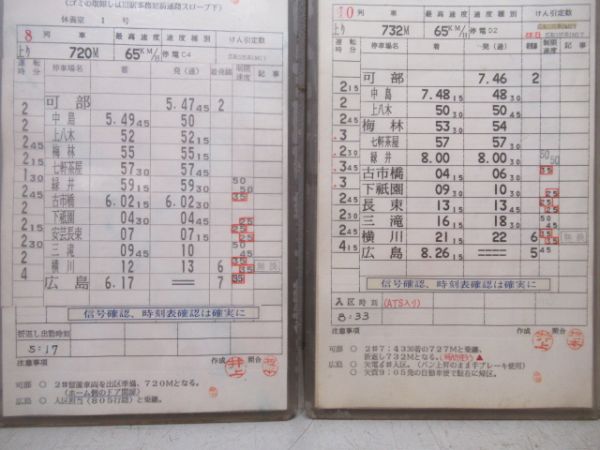 休養室 1 号
8 列車 最高速度 速度種別 けん引定数
上り 720M 65KM/H 停電C4
運転時分 停車場名 着 発(通) 着発線 制限速度 記事
可部 5.47 45 2
2 中島 5.49 45 50
2 上八木 52 52 15
2 45 梅林 55 55 15
2 15 七軒茶屋 57 30 57 45
1 45 緑井 59 15 59 30 50
2 30 古市橋 6.02 15 6.02 30 50 35
2 下祗園 04 30 04 45 25
2 15 安芸長束 07 07 15 25 25
2 30 三滝 09 45 10 50 45
2 横川 12 13 6 35 35 無長
4 広島 6.17 == 7 35
信号確認、時刻表確認は確実に
折返し出勤時刻
5:17
注意事項 作成 井上 照合
可部 ○ 2番留置車両を出区準備、720Mとなる。
(ホーム側のドア開扉)
広島 ○ 入区担当(805行路)と乗継。
10 列車 最高速度 速度種別 けん引定数
上り 732M 65KM/H 停電D2
運転時分 停車場名 着 発(通) 制限速度 記事
可部 7.46 2
2 15 中島 7.48 15 48 30
2 上八木 50 30 50 45
2 45 梅林 53 30 54
3 七軒茶屋 57 57 30
2 30 緑井 8.00 8.00 30 50 50
3 45 古市橋 04 15 06 35
3 下祗園 09 30 10 25
2 45 長束 13 15 13 45 25 25
2 30 三滝 16 15 18 30 50 45
2 30 横川 21 15 22 6 35 35 無長
4 15 広島 8.26 15 ==== 5 45
信号確認、時刻表確認は確実に
入区時刻 (ATS入り)
8:33
注意事項 作成 照合
可部 ○ 2番7:43 30着の727Mと乗継。
折返し732Mとなる。